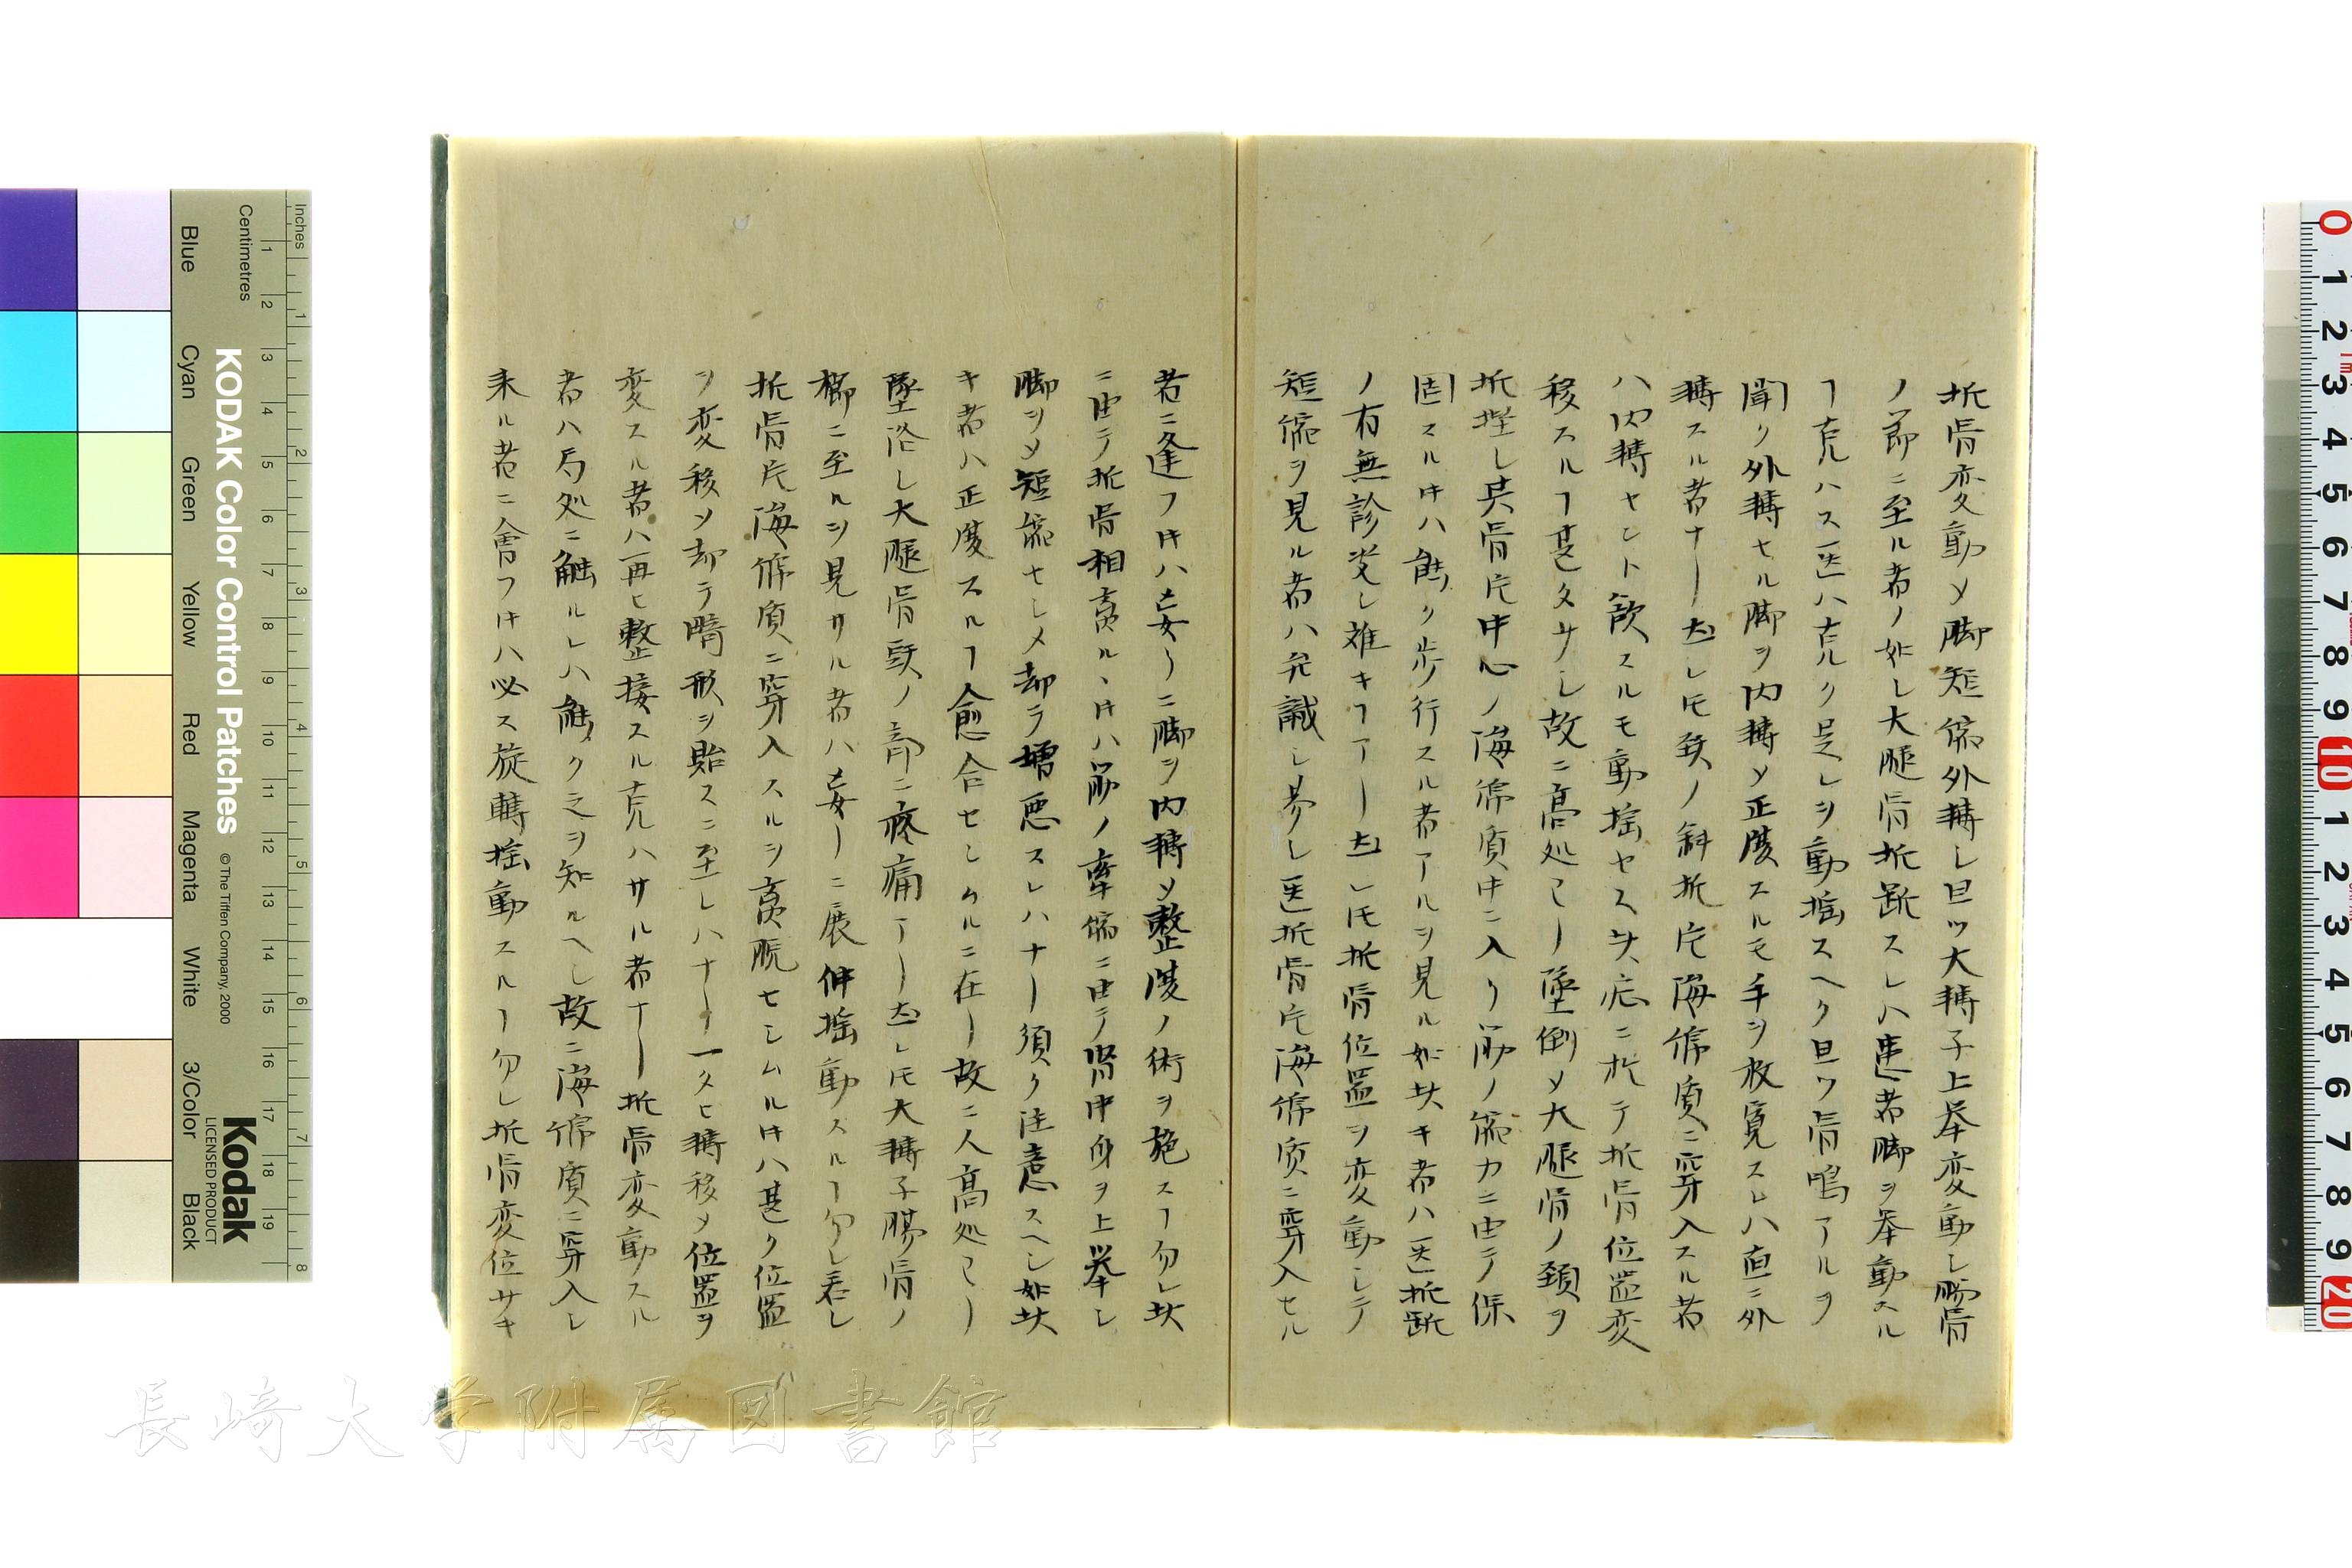 折骨変動メ脚短縮外轉シ旦ツ大轉子上举変動シ腸骨
ノ節ニ至ル者ノ如シ大腿骨折断スレハ患者脚ヲ举動スル
ヿ克ハス医ハ克ルク是レヲ動揺スヘク旦ツ骨鳴アルヲ
聞ク外轉セル脚ヲ内轉メ正復スルモ手ヲ放寛スレハ直ニ外
轉スル者ナリ𪜈頚ノ斜折片海绵質ニ穿入スル者
ハ内轉セント欲スルモ動揺セス此症ニ於テ折骨位置変
移スルヿ甚タサシ故ニ高処ヨリ墜倒メ大腿骨ノ頚ヲ
折挫シ其骨片中心ノ海綿質中ニ入リ筋ノ縮力ニ由テ保
固スルキハ能ク歩行スル者アルヲ見ル如此キ者ハ医折断
ノ有無診定シ难キヿアリ𪜈折骨位置ヲ変動シテ
短縮ヲ見ル者ハ弁識シ易シ医折骨片海綿質ニ穿入セル
者ニ逢フキハ妄リニ脚ヲ内轉メ整復ノ術ヲ施スヿ勿レ此
ニ由テ折骨相離ルヽキハ筋ノ牽縮ニ由テ骨中身ヲ上举シ
脚ヲメ短縮セシメ却テ増悪スレハナリ須ク注意スヘシ如此
キ者ハ正復スルヿ愈合セシムルニ在リ故ニ人高処ヨリ
墜落シ大腿骨頚ノ部ニ疼痛アリ𪜈大轉子腸骨ノ
櫛ニ至ルヲ見サル者ハ妄リニ展伸揺動スルヿ勿レ若シ
折骨片海綿質ニ穿入スルヲ離脱セシムルキハ甚タ位置
ヲ変移メ却テ畸形ヲ貽スニ至レハナリ一タヒ轉移メ位置ヲ
変スル者ハ再ヒ整接スル克ハサル者ナリ折骨変動スル
者ハ局処ニ触ルレハ能ク之ヲ知ルヘシ故ニ海綿質ニ穿入シ
来ル者ニ會フキハ必ス旋轉揺動スルヿ勿レ折骨変位サキ
KODAK Color Control Patches
© The Tiffen Company, 2000
Kodak
LICENSED PRODUCT
Inches
Centimetres
Blue
Cyan
Green
Yellow
Red
Magenta
White
3/Color
Black
長崎大学附属図書館